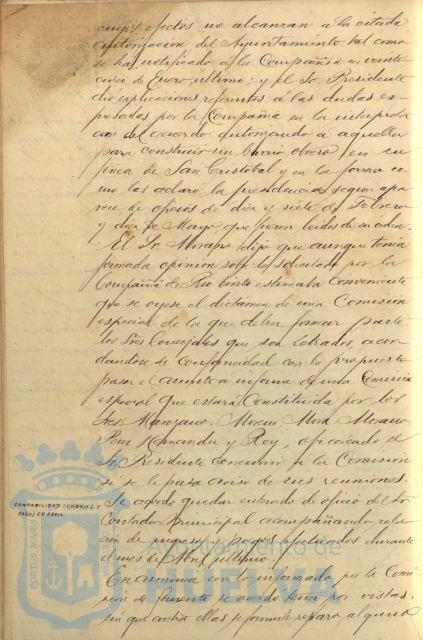 cuyos efectos no alcanzan á la citada
autorizacion del Ayuntamiento tal como
se ha notificado á la Compañia en veinte
cinco de Enero último; y el Sr. Presidente
dió esplicaciones referentes á las dudas ex-
presadas por la Compañia en la interpreta
cion del acuerdo autorizando á aquella
para construir un barrio obrero en su
finca de San Cristobal y en la forma co-
mo las aclaró la presidencia segun apa-
rece de oficios de diez y siete de Febrero
y diez de Mayo que fueron leidos de su orden.
El Sr. Morano dijo que aunque tenia
formada opinion sobre lo solicitado por la
Compañia de Rio Tinto estimaba conveniente
que se oyese el dictámen de una Comision
especial de la que deben formar parte
los Sres Concejales que son Letrados, acor-
dandose de conformidad con lo propuesto
pasar el asunto á informe de una Comision
especial que estará constituida por los
Sres. Manzano, Moreno Mora, Morano
Perez Hernandez y Rey, ofreciendo el
Sr. Presidente concurrir á la Comision
si se le pasa aviso de sus reuniones.
CONTABILIDAD: COBROS Y
PAGOS EN ABRIL
Se acordó quedar enterado de oficio del Sr
Contador municipal acompañando rela-
cion de ingresos y pagos efectuados durante
el mes de Abril último.
En armonia con lo informado por la Comi
sion de Fomento se acordó tener por vistas
sin que contra ellas se formule reparo alguno
PORTUS MARIS
Ayuntamiento de